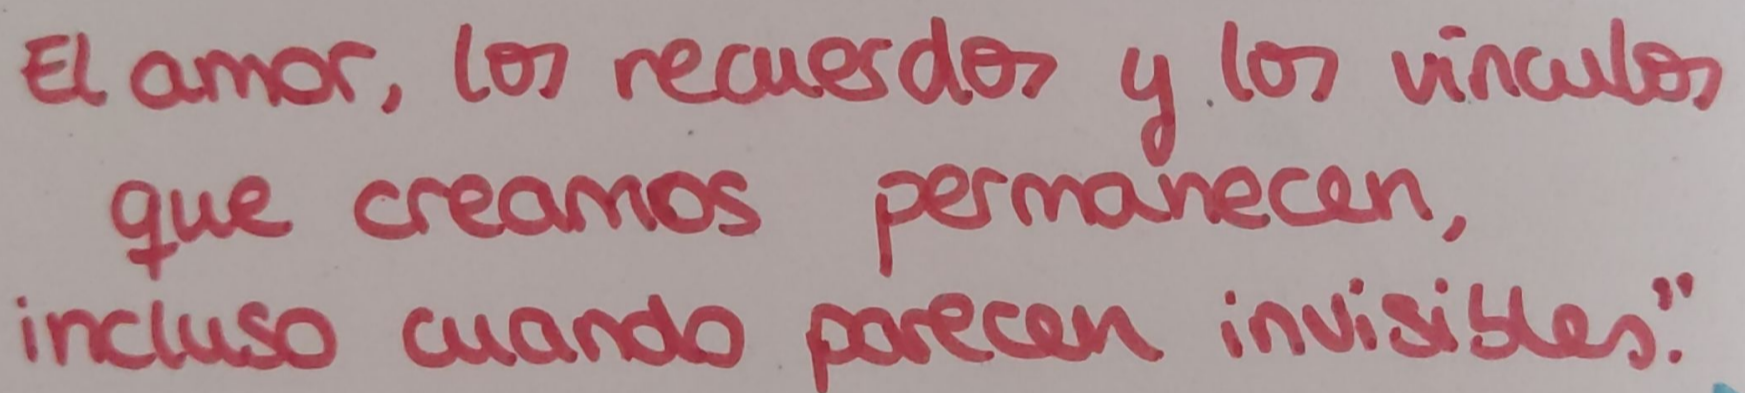 El amor, los recuerdos y los vínculos
que creamos permanecen,
incluso cuando parecen invisibles."